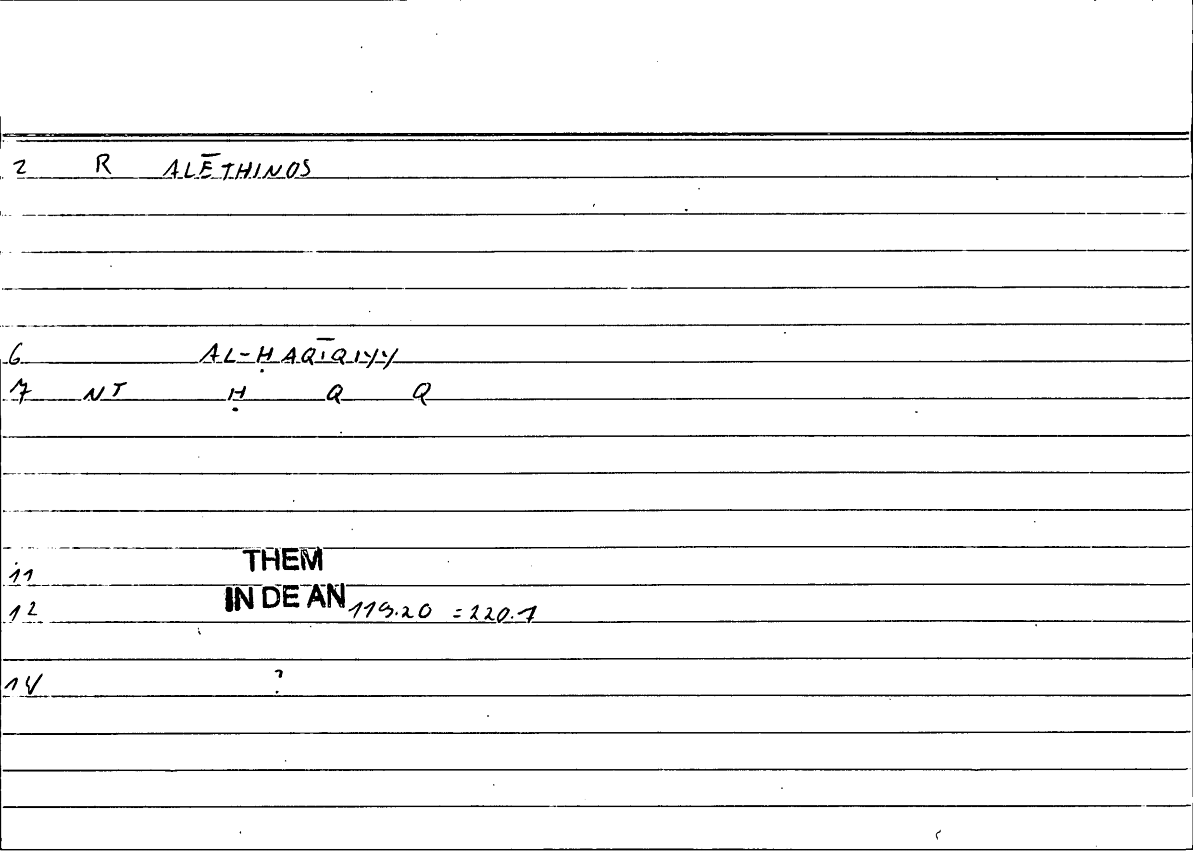 2 R ALĒTHINOS
6 AL-ḤAQĪQIYY
7 NT Ḥ Q Q
11 THEM
12 IN DE AN 119.20 = 220.1
14 ?